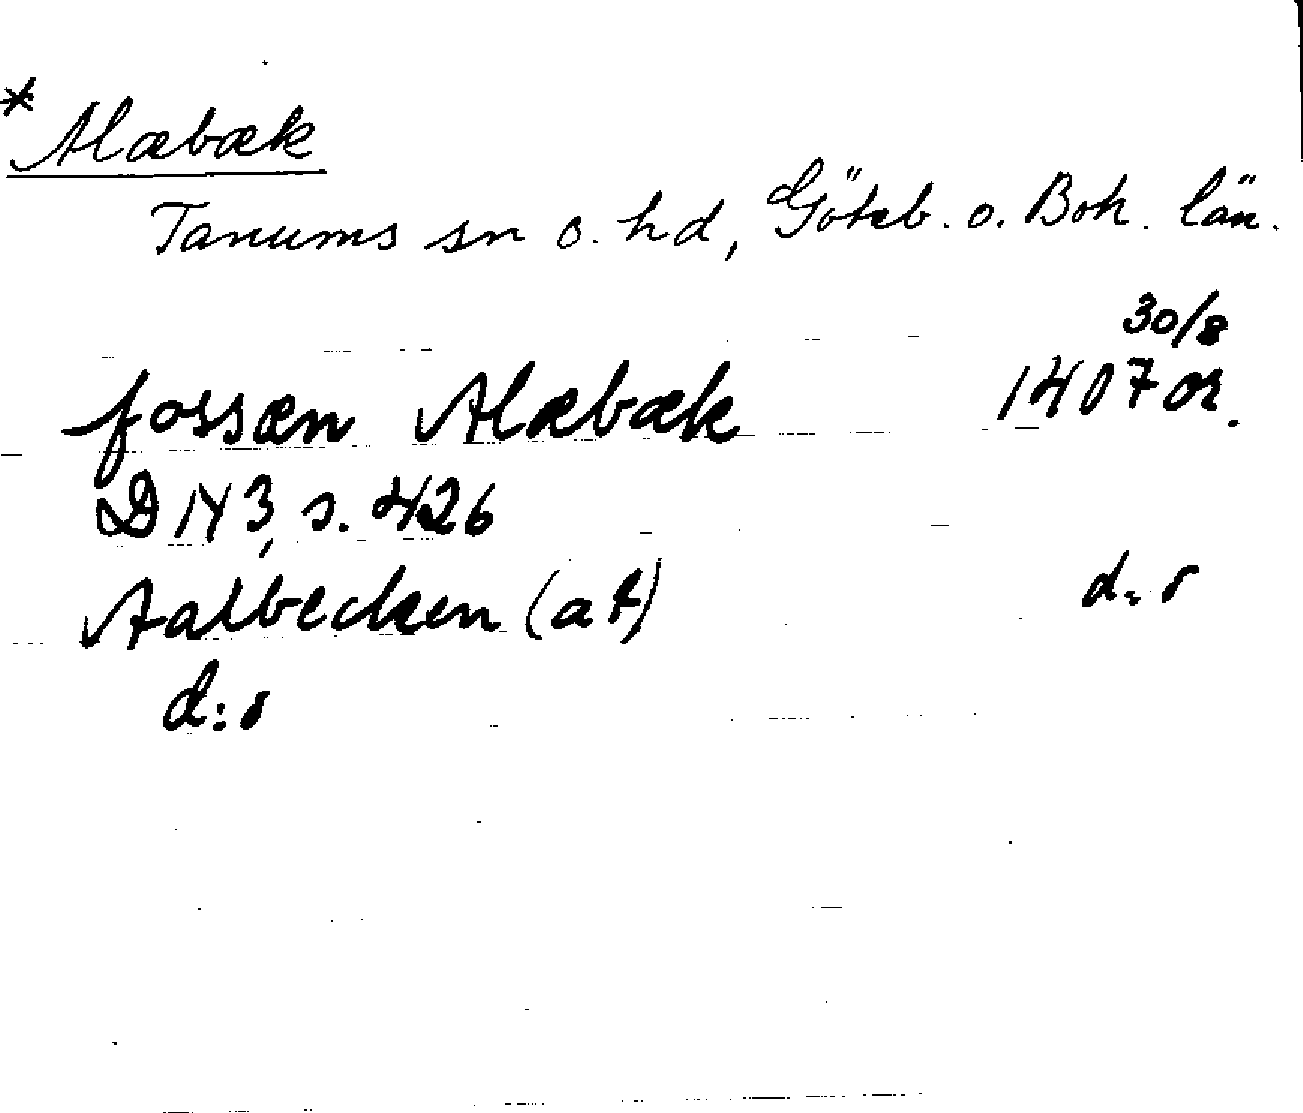 * Alæbæk
Tanums sn o. hd, Göteb. o. Boh. län.
30/8
fossæn Alæbæk 1407 or.
DN 3, s. 426
Aalbecken (at) d:o
d:o